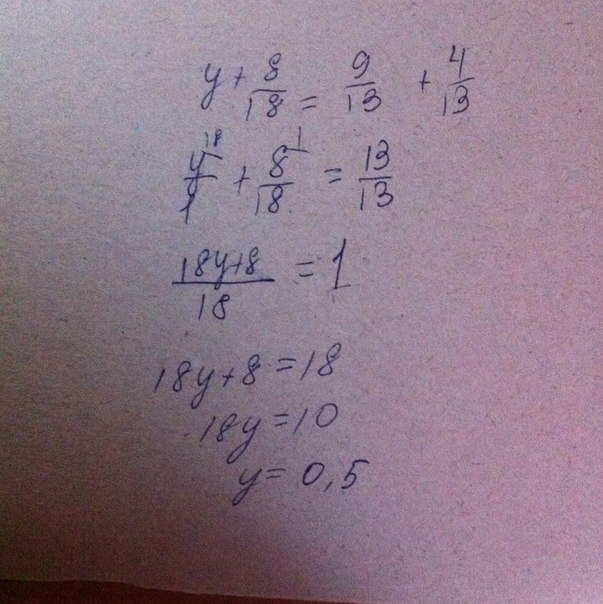 y + 8/18 = 9/13 + 4/13
y/1 ^18 + 8/18 ^1 = 13/13
18y+8/18 = 1
18y+8 = 18
18y = 10
y = 0,5